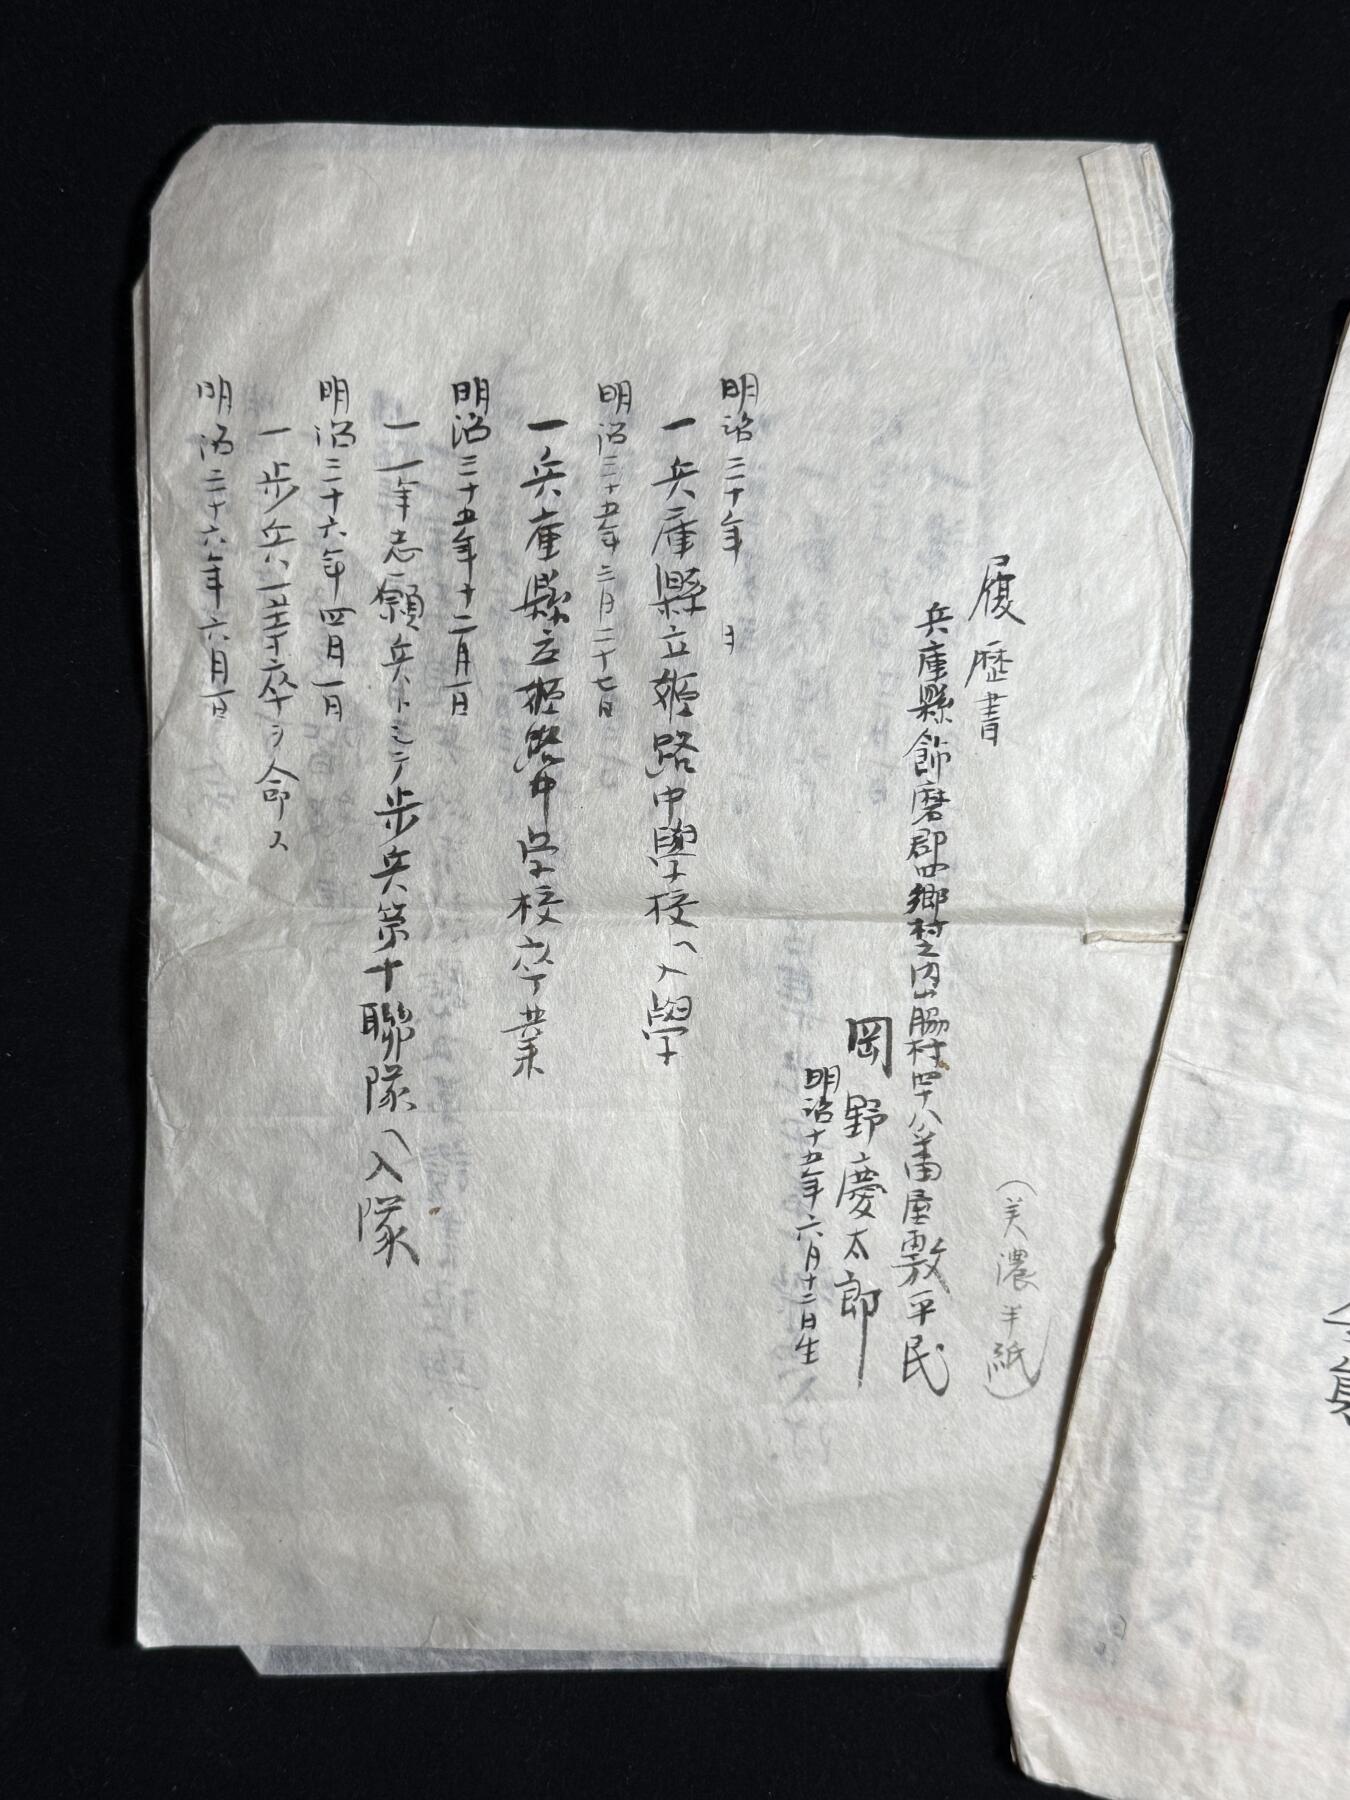 (美濃半紙)
履歴書
兵庫縣飾磨郡四郷村之内山脇村四十八番屋敷平民
岡野慶太郎
明治十五年六月十二日生
明治三十年 月
一兵庫縣立姫路中學校ヘ入學
明治三十五年三月二十七日
一兵庫縣立姫路中学校卒業
明治三十五年十二月一日
一一年志願兵トシテ歩兵第十聯隊ヘ入隊
明治三十六年四月一日
一歩兵一等卒ヲ命ス
明治三十六年六月一日